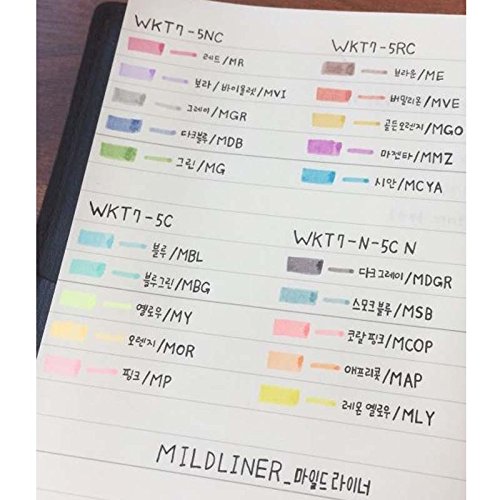 WKT7-5NC
레드/MR
보라/바이올렛/MVI
그레이/MGR
다크블루/MDB
그린/MG
WKT7-5RC
브라운/ME
버밀리온/MVE
골든오렌지/MGO
마젠타/MMZ
시안/MCYA
WKT7-5C
블루/MBL
블루그린/MBG
옐로우/MY
오렌지/MOR
핑크/MP
WKT7-N-5C N
다크그레이/MDGR
스모크블루/MSB
코랄핑크/MCOP
애프리콧/MAP
레몬옐로우/MLY
MILDLINER_마일드라이너